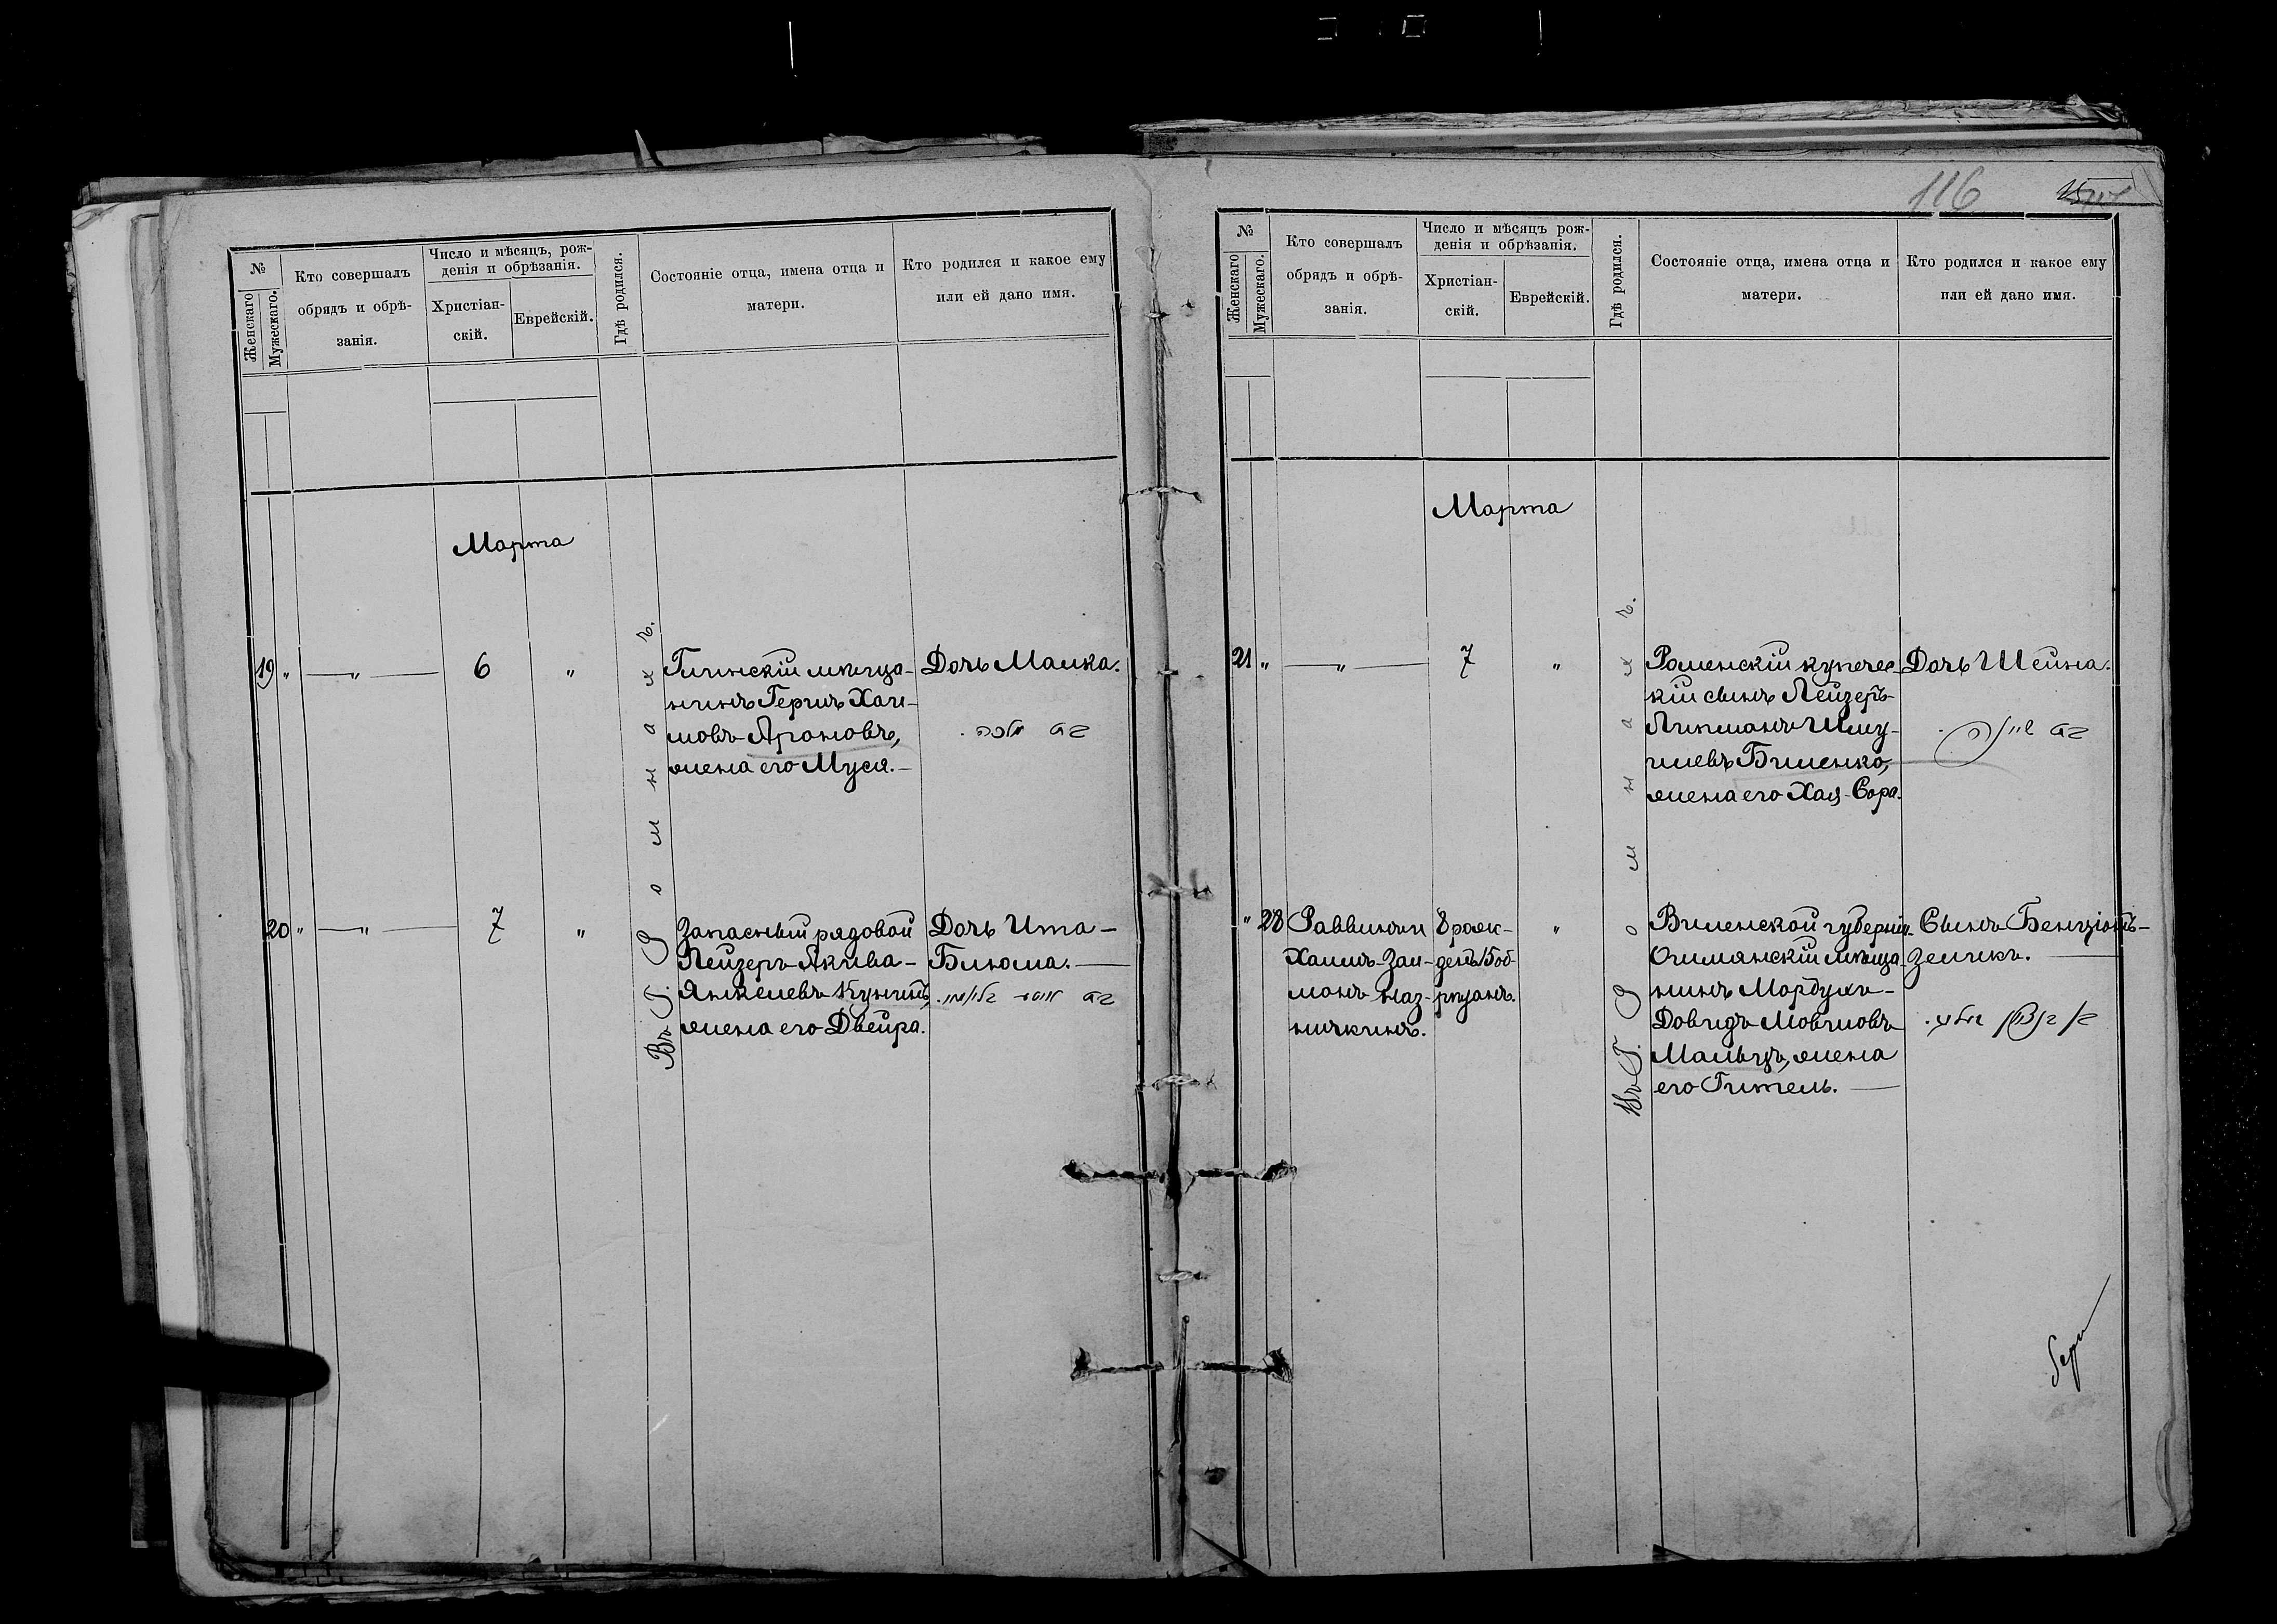 №
Женскаго
Мужескаго.
Кто совершалъ
обрядъ и обрѣ-
занія.
Число и мѣсяцъ, рож-
денія и обрѣзанія.
Христіан-
скій.
Еврейскій.
Гдѣ родился.
Состояніе отца, имена отца и
матери.
Кто родился и какое ему
или ей дано имя.
Марта
19 " — " — 6 "
Въ Г. Ромнахъ.
мѣща-
нинъ Гершъ Хаи-
мовъ Ароновъ,
жена его Муся.—
Дочь Малка.
בת מלכה.
20 " — " — 7 "
Запасный рядовой
Лейзеръ-Акива-
Янкелевъ Кунинъ,
жена его Двейра.
Дочь Ита-
Блюма.—
בת איטא בלומא.
116
№
Женскаго
Мужескаго.
Кто совершалъ
обрядъ и обрѣ-
занія.
Число и мѣсяцъ рож-
денія и обрѣзанія.
Христіан-
скій.
Еврейскій.
Гдѣ родился.
Состояніе отца, имена отца и
матери.
Кто родился и какое ему
или ей дано имя.
Марта
21 " — " — 7 "
Въ Г. Ромнахъ.
Роменскій купечес-
кій сынъ Лейзеръ-
Липманъ Шму-
илевъ Биленко,
жена его Хая-Сора.
Дочь Шейна.
בת שיינה.
" 28
Раввинъ
Хаимъ-Зал-
манъ Наз-
ничкинъ.
8 рож-
денъ 15 об-
рѣзанъ.
"
Виленской губерніи
Ошмянскій мѣща-
нинъ Мордухъ-
Довидъ Мовшовъ
Мальцъ, жена
его Гитель.—
Сынъ Бенціонъ-
Зеликъ.—
בן בן ציון זעליג.